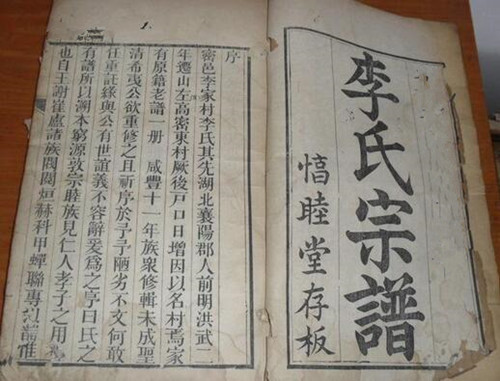 李氏宗譜
愊睦堂存板
序
密邑李家村李氏其先湖北襄陽郡人前明洪武二
年遷山左高密東村厥後戶口日增因以名村焉家
有原籍老譜一册 咸豐十一年族衆修輯未成聖
清希夷公欲重修之且祈序於予予陋劣不文何敢
任重託緣與公有世誼義不容辭爰爲之曰氏之
有譜所以溯本窮源敦宗睦族見仁人孝子之用
也自王謝崔盧諸族閥閱烜赫科甲蟬聯專譜惟
1.